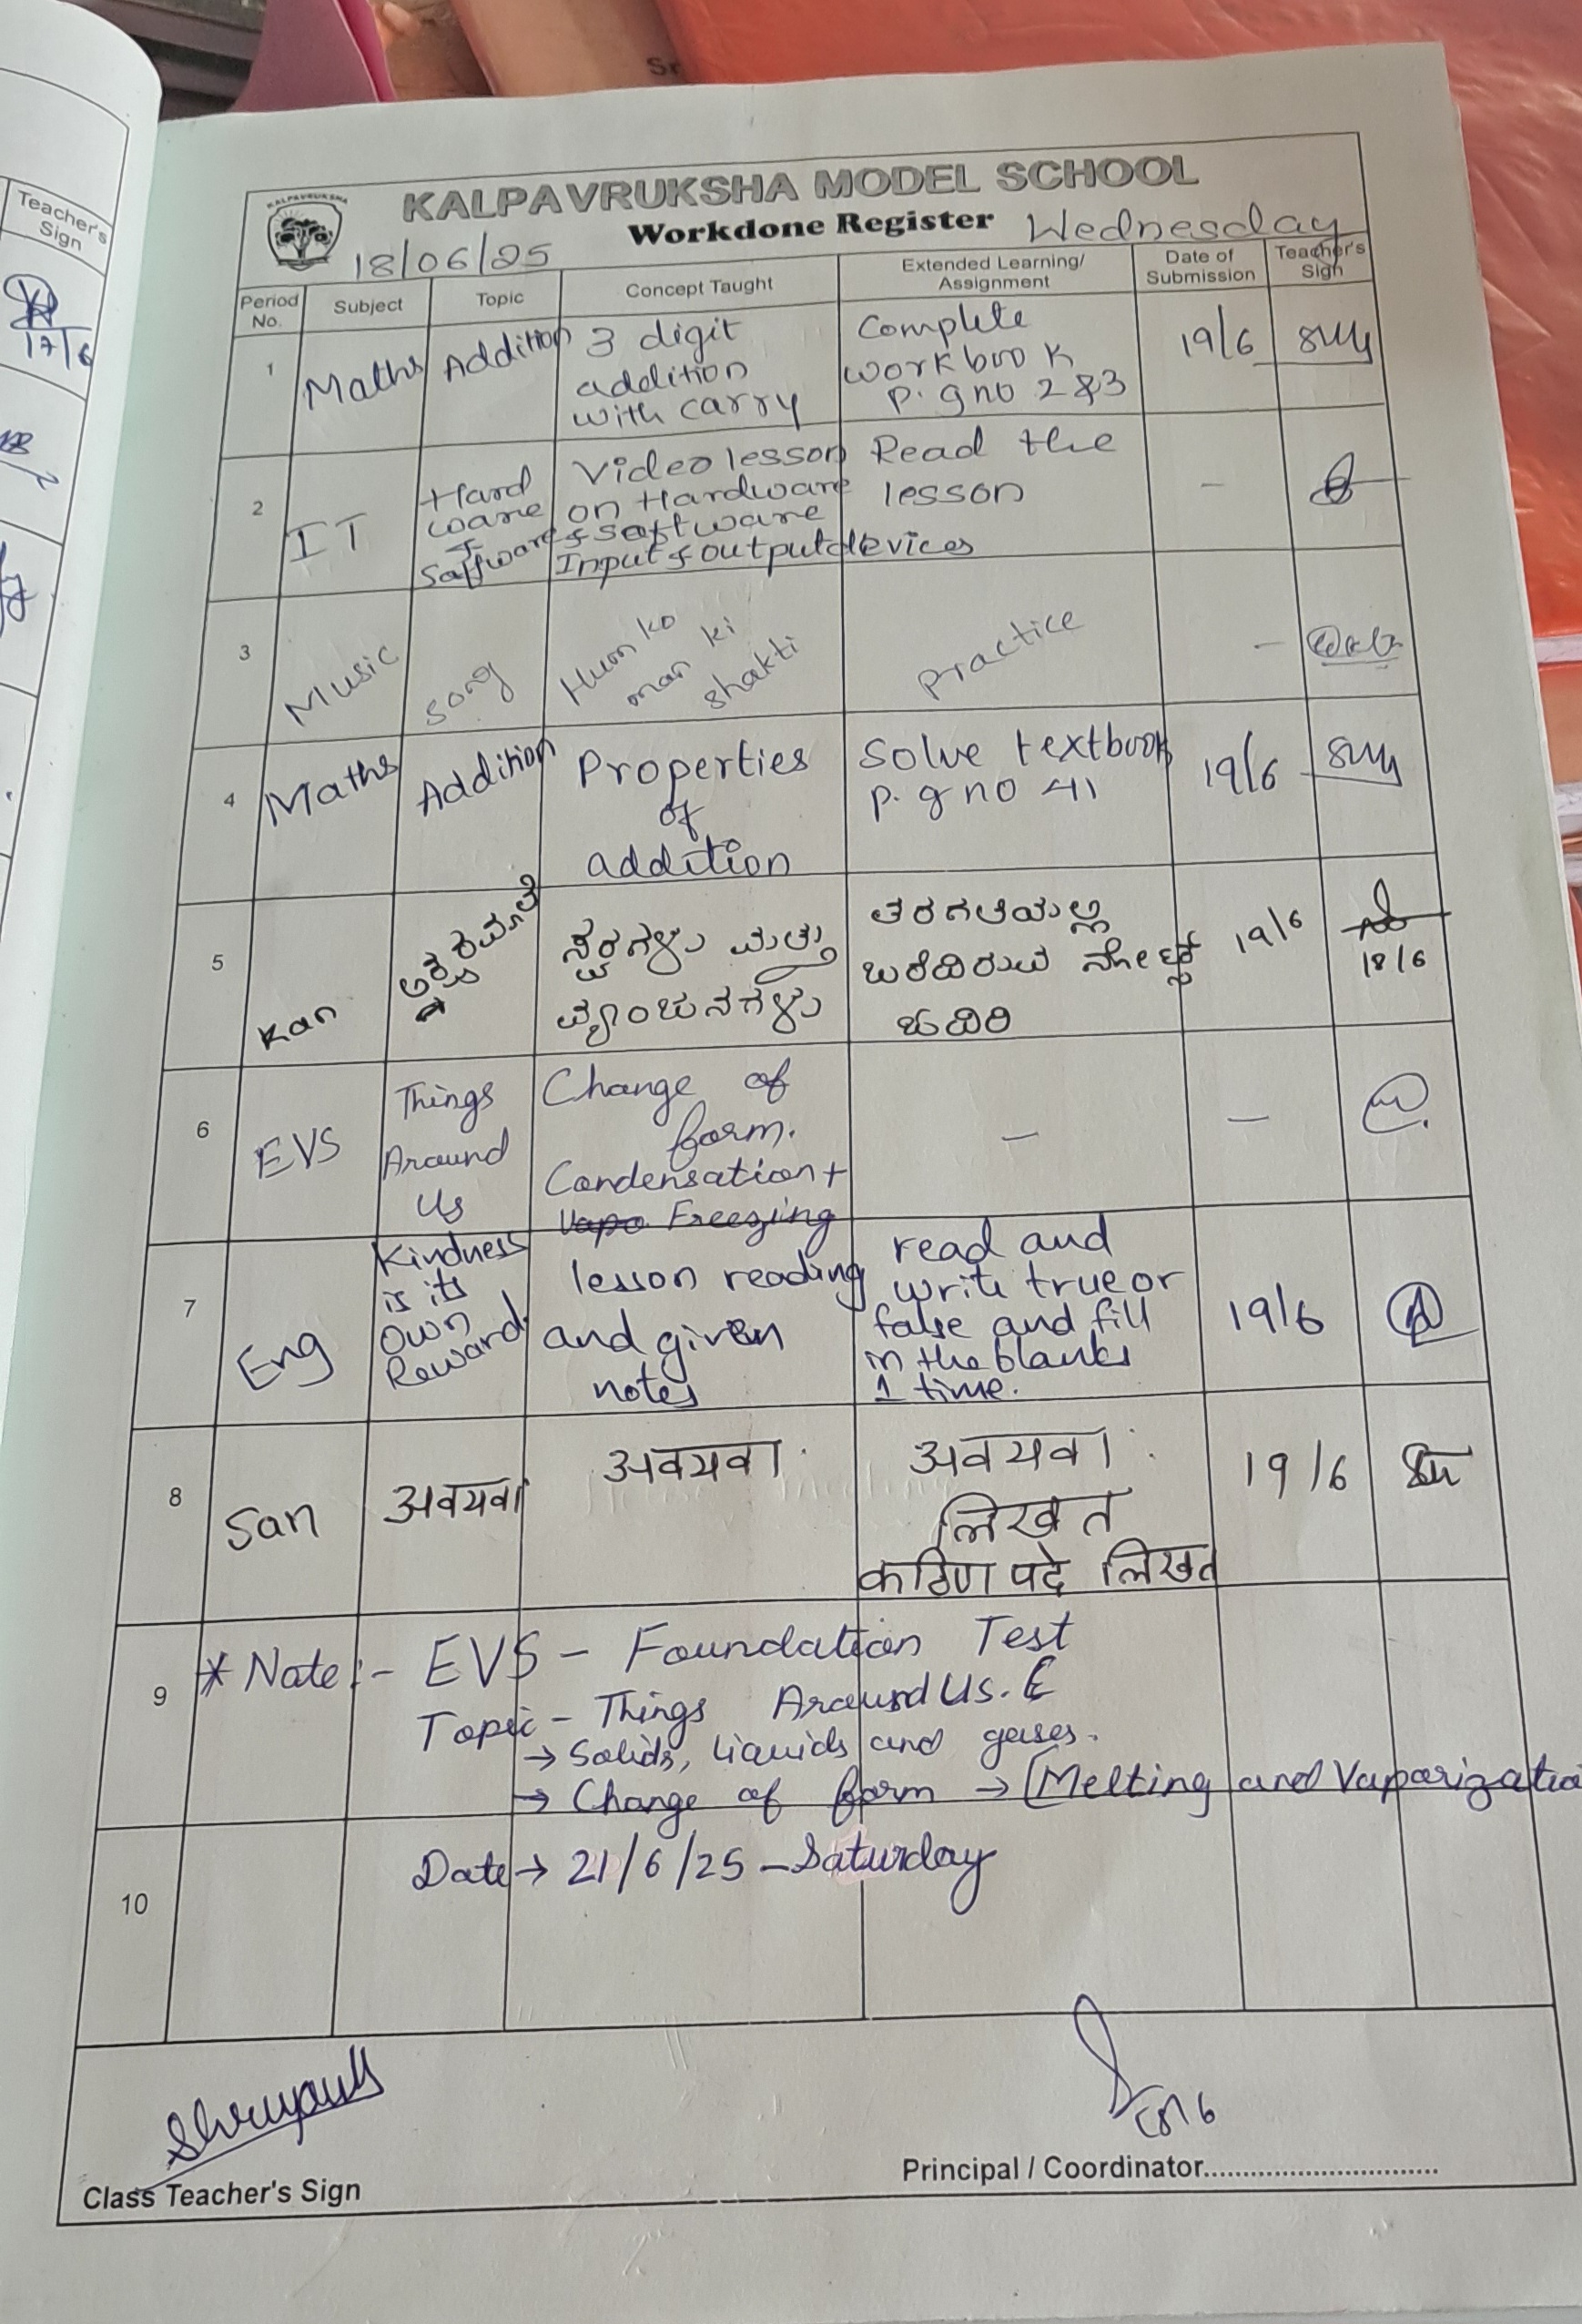 Sr
Teacher's
Sign
17/6
KALPAVRUKSHA
KALPAVRUKSHA MODEL SCHOOL
18/06/25 Workdone Register Wednesday
Period No. Subject Topic Concept Taught Extended Learning/ Assignment Date of Submission Teacher's Sign
1 Maths Addition 3 digit addition with carry Complete workbook p.g no 2 &3 19/6
2 IT Hard ware & Saftware Video lesson on Hardware & saftware Input & output devices Read the lesson -
3 Music song Hum ko man ki shakti practice -
4 Maths Addition Properties of addition Solve textbook p.g no 41 19/6
5 Kan ಸ್ವರಗಳು ಮತ್ತು ವ್ಯಂಜನಗಳು ತರಗತಿಯಲ್ಲಿ ಬರೆದಿರುವ ನೋಟ್ಸ್ 19/6 18/6
6 EVS Things Around Us Change of form. Condensation + Freezing - -
7 Eng Kindness is its own Reward. lesson reading and given notes read and write true or false and fill in the blanks 1 time. 19/6
8 San अवयवाः अवयवाः अवयवाः लिखत कठिण पदे लिखत 19/6
9 * Note:- EVS - Foundation Test
Topic - Things Around Us.
→ Solids, liquids and gases.
→ Change of form → (Melting and Vaporizatio
10 Date → 21/6/25 - Saturday
Class Teacher's Sign
Principal / Coordinator..............................